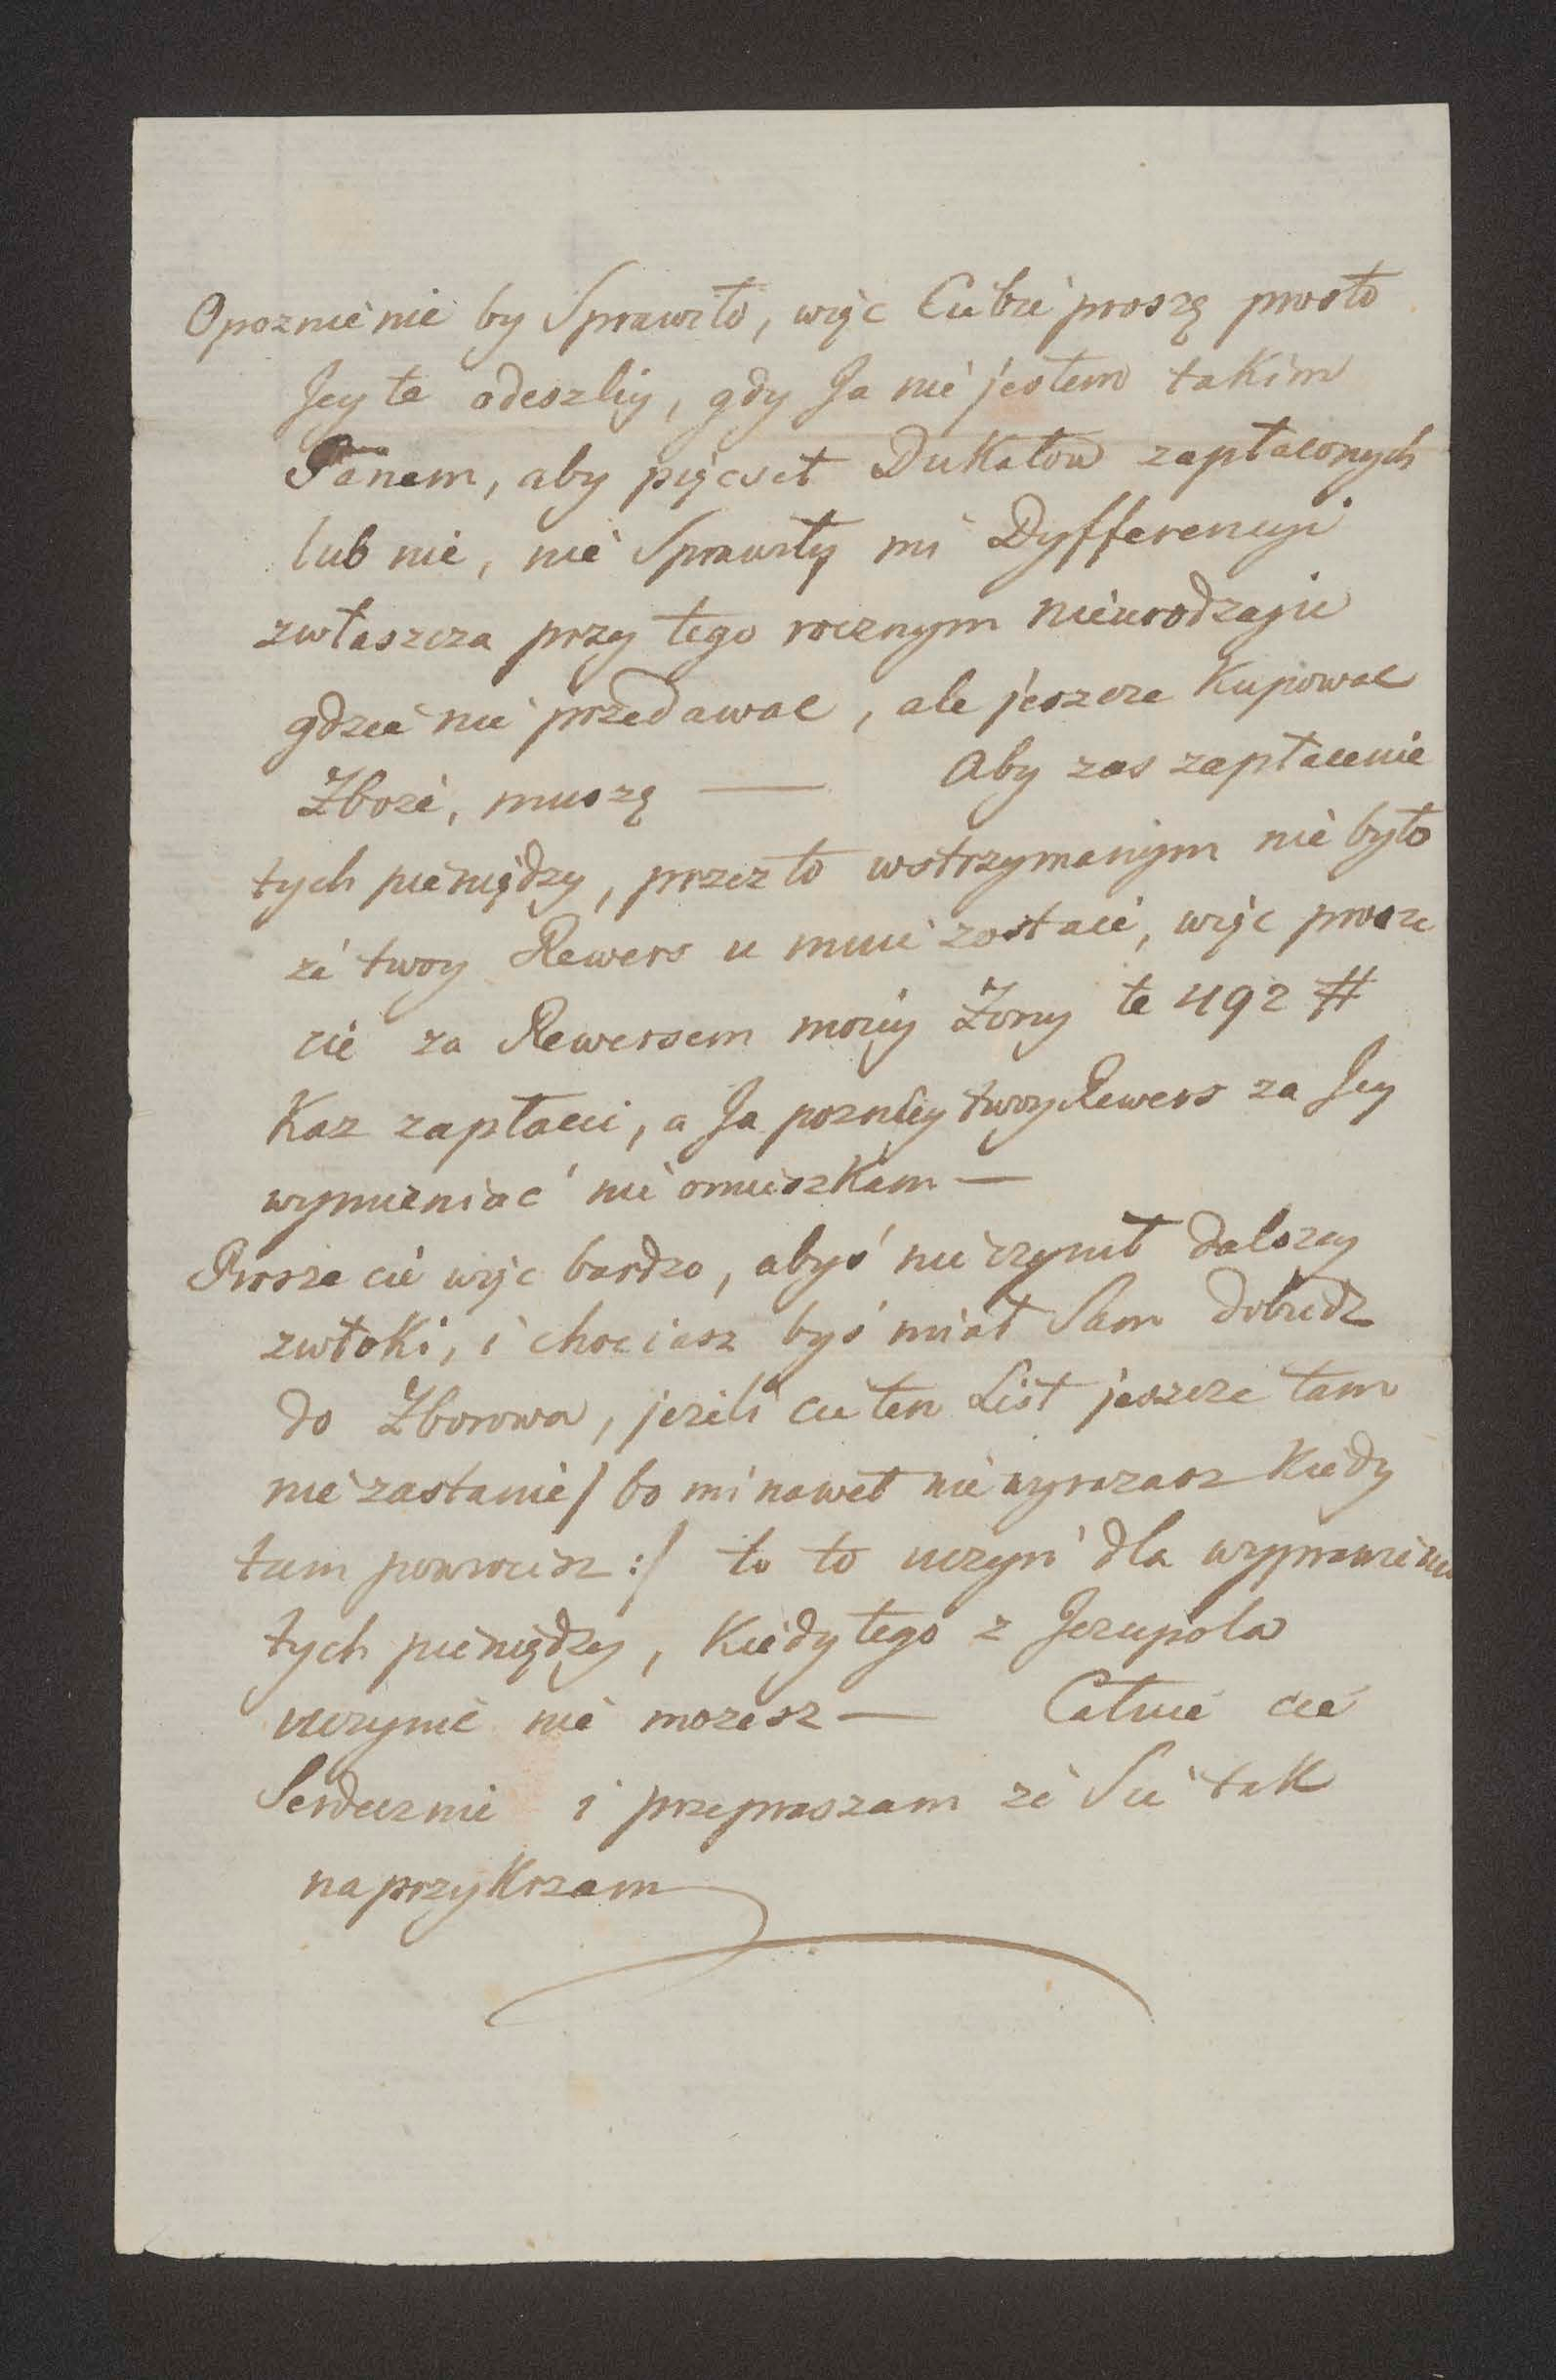 Opoznienie by Sprawiło, więc Ciebie proszę prosto
Jey te odeszliy, gdy Ja nie jestem takim
Panem, aby pięcset Dukatow zapłaconych
lub nie, nie Sprawiły mi Dyfferencyi
zwłaszcza przy tego rocznym nieurodzaju
gdzie nie przedawac, ale jeszcze Kupowac
Zboże, muszę — Aby zas zapłacenie
tych pieniędzy, przez to wstrzymanym nie było
że twoy Rewers u mnie zostaie, więc prosze
cie za Rewersem moiey Żony te 492 #
Kaz zapłacic, a Ja pozniey twoy Rewers za Jey
wymieniać nie omieszkam —
Prosze cie więc bardzo, abyś nie czynił dalszey
zwłoki, i chociasz byś miał Sam dobiedz
do Zborowa, jeżeli cie ten List jeszcze tam
nie zastanie / bo mi nawet nie wyrazasz Kiedy
tam powrocisz :/ to to uczyń dla wyprawienia
tych pieniędzy, Kiedy tego z Jezupola
uczynić nie mozesz — Całuie cie
Serdecznie i przepraszam że Sie tak
naprzykrzam